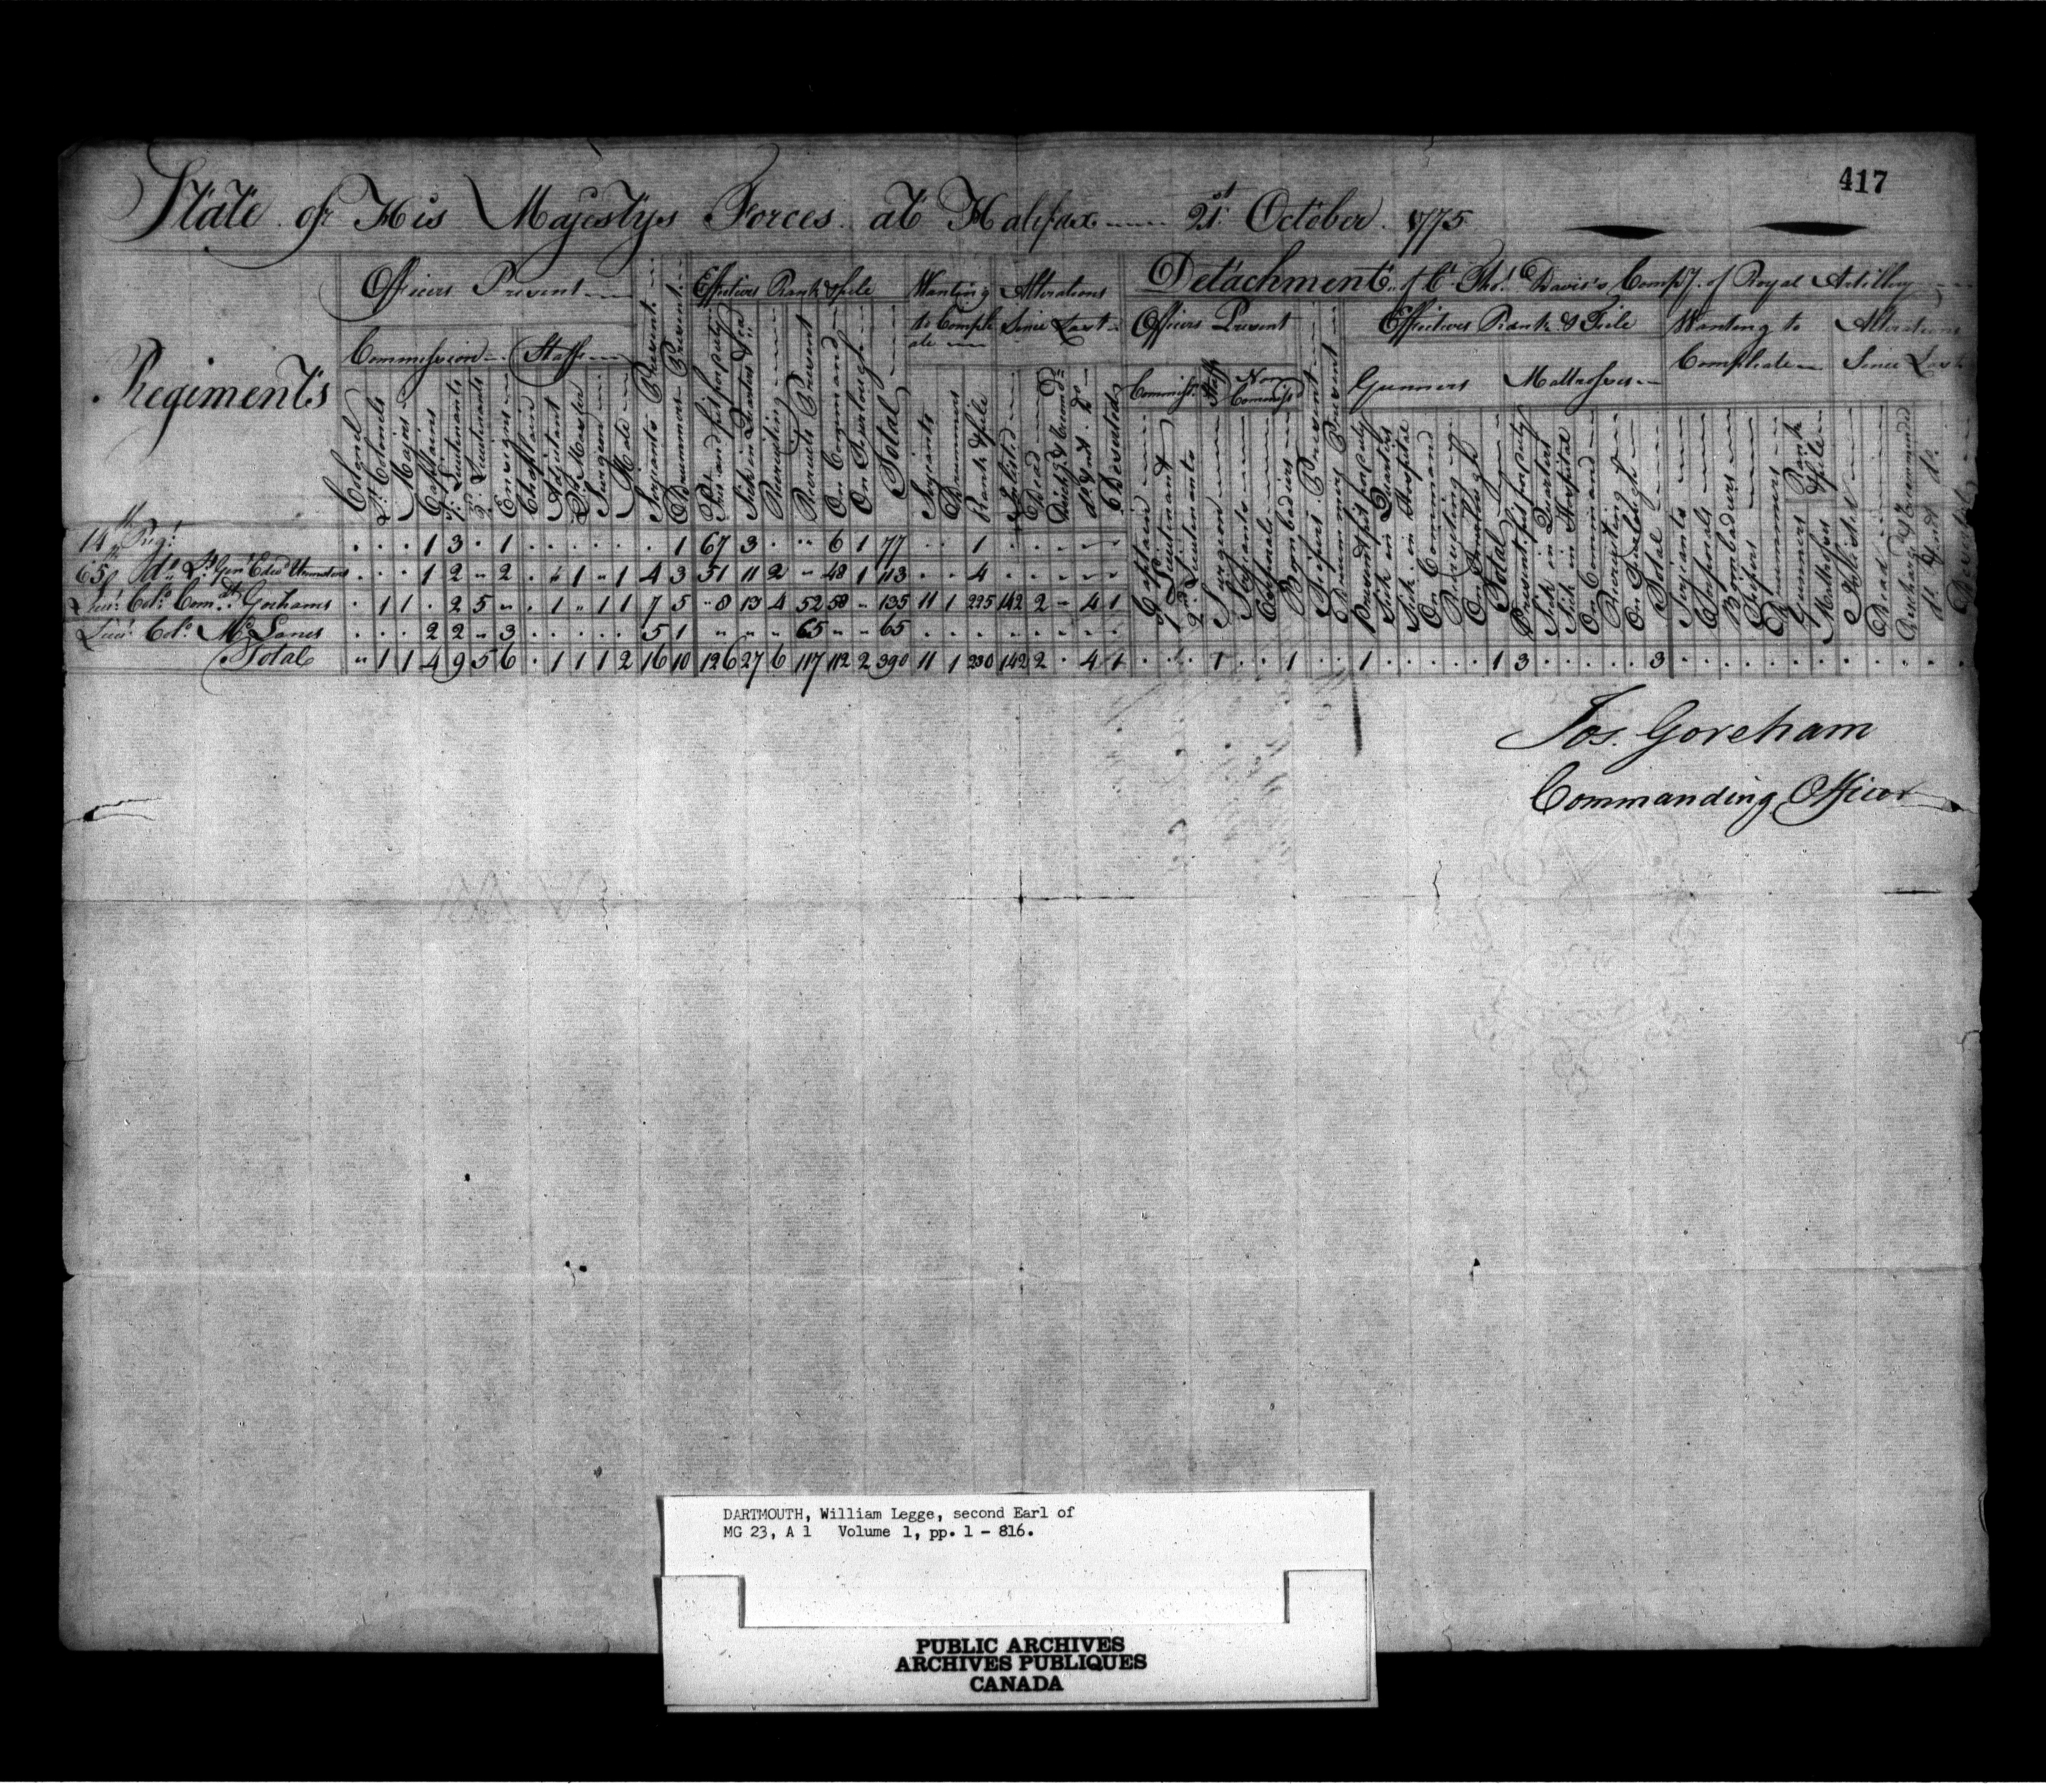 417
State of His Majestys Forces at Halifax 21st October 1775
Officers Present
Effectives Rank & file
Wanting to Compleate
Alterations Since Last
Detachmt. of Ct. Thos. Davis's Compy. of Royal Artillery
Officers Present
Effectives Rank & File
Wanting to Compleate
Alterations Since Last
Regiments
Commission
Staff
Commiss.
Staff
Non Commiss'd
Gunners
Mattrosses
Colonel
Lt. Colonels
Major
Captains
1st. Lieutenants
2d. Lieutenants
Ensigns
Chaplain
Adjutant
Qr. Master
Surgeon
Mate
Serjeants Present
Drummers Present
Pt. fit for duty
Sick in Quarters &
Recruiting
Recruits Present
On Command
On Furlough
Total
Serjeants
Drummers
Rank & file
Inlisted
Dead
Disch'd & Recomd.
do. & not do.
Deserted
Captain
1st Lieutenant
2nd. Lieutenants
Surgeon
Serjeants
Corporals
Bombadiers
Fiefers Present
Drummers Present
Present fit for duty
Sick in Quarters
Sick in Hospital
On Command
Recruiting
On Furlough
Total
Present fit for duty
Sick in Quarters
Sick in Hospital
On Command
Recruiting
On Furlough
Total
Serjeants
Corporals
Bombadiers
Fiefers
Drummers
Gunners
Mattrosses
Rank & File
Inlisted
Dead
Discharg'd & Recommended
do. & not do.
Deserted
14th Regt. . . . 1 3 . 1 . . . . . . 1 67 3 . " 6 1 77 . . 1 . . . . .
65th do. Lt. Genl. Edwd. Urmstons . . . 1 2 " 2 . " 1 " 1 4 3 51 11 2 " 48 1 113 . . 4 . . . . .
Lieut. Colo. Comdt. Gorhams . 1 1 . 2 5 " . 1 " 1 1 7 5 " 8 13 4 52 58 " 135 11 1 225 142 2 " 4 1
Lieut. Colo. McLanes . . . 2 2 " 3 . . . . . 5 1 " " " 65 " " 65 . . . . . . . .
Total " 1 1 4 9 5 6 . 1 1 1 2 16 10 126 27 6 117 112 2 390 11 1 230 142 2 . 4 1 . . . 1 . . 1 . . 1 . . . . . 1 3 . . . . . 3 . . . . . . . . . . . .
Jos. Goreham
Commanding Officer
DARTMOUTH, William Legge, second Earl of
MG 23, A 1 Volume 1, pp. 1 - 816.
PUBLIC ARCHIVES
ARCHIVES PUBLIQUES
CANADA